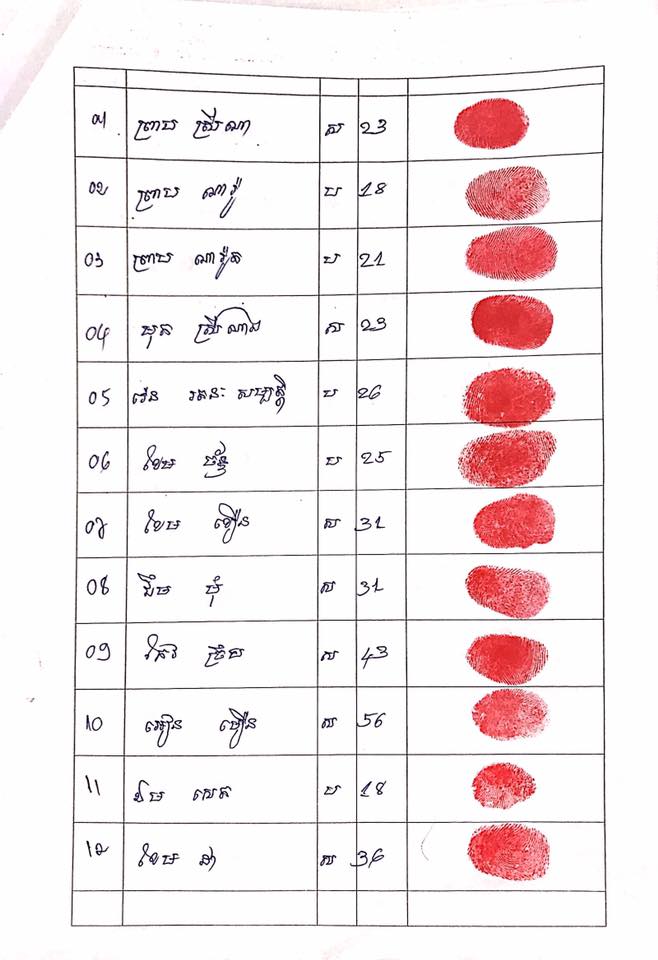 ០១ ព្រាប ស្រីណា ស 23
០២ ព្រាប ណារ៉ូ ប 18
03 ព្រាប ណារ៉ុត ប 21
04 មុត ស្រីណាង ស 23
05 វេន រតនៈ សម្បត្តិ ប 26
06 ខែម ច័ន្ទ ប 25
0៦ ខែម ទឿន ស 31
08 ជឹម ម៉ុំ ស 31
09 ស 43
10 មឿន ស 56
11 សេត ប 18
1២ ខែម ដា ស 36